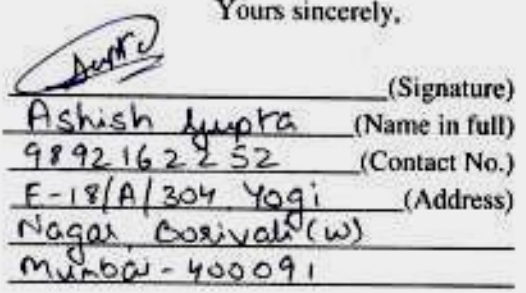 Yours sincerely,
Gupta (Signature)
Ashish Gupta (Name in full)
9892162252 (Contact No.)
E-18/A/304 Yogi (Address)
Nagar Borivali (W)
Mumbai - 400091